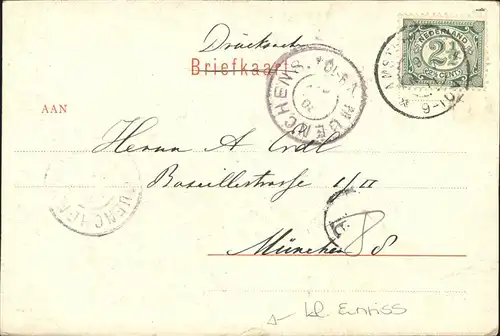 Drucksache
Briefkaart
NEDERLAND
2½
CENT
AMST
9-10
MUENCHEN S.
AAN
Herrn A Ordl
Bazeillestrasse 1/II
München 8
kl. Einriss